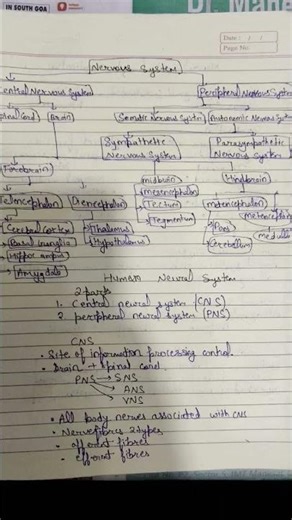 IN SOUTH GOA
Date: / /
Page No.
Nervous System
Central Nervous System
Peripheral Nervous System
Spinal Cord
Brain
Somatic Nervous System
Autonomic Nervous System
Sympathetic
Nervous System
Parasympathetic
Nervous System
Forebrain
midbrain
mesencephalon
Hindbrain
Telencephalon
Diencephalon
Tectum
metencephalon
Cerebral Cortex
Thalamus
Tegmentum
Pons
Basal Ganglia
Hypothalamus
Cerebellum
medulla
Hippocampus
Amygdala
Human Neural System
2 parts
1. Central neural system (CNS)
2. peripheral neural system (PNS)
CNS
• Site of information processing control.
• Brain + spinal cord
PNS → SNS
ANS
VNS
• All body nerves associated with CNS
• Nerve fibres 2 types
- afferent fibres
- efferent fibres